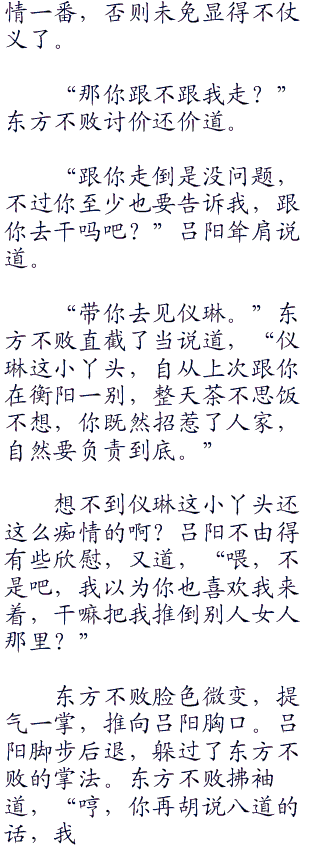 情一番，否则未免显得不仗
义了。
“那你跟不跟我走？”
东方不败讨价还价道。
“跟你走倒是没问题，
不过你至少也要告诉我，跟
你去干吗吧？”吕阳耸肩说
道。
“带你去见仪琳。”东
方不败直截了当说道，“仪
琳这小丫头，自从上次跟你
在衡阳一别，整天茶不思饭
不想，你既然招惹了人家，
自然要负责到底。”
想不到仪琳这小丫头还
这么痴情的啊？吕阳不由得
有些欣慰，又道，“喂，不
是吧，我以为你也喜欢我来
着，干嘛把我推倒别人女人
那里？”
东方不败脸色微变，提
气一掌，推向吕阳胸口。吕
阳脚步后退，躲过了东方不
败的掌法。东方不败拂袖
道，“哼，你再胡说八道的
话，我